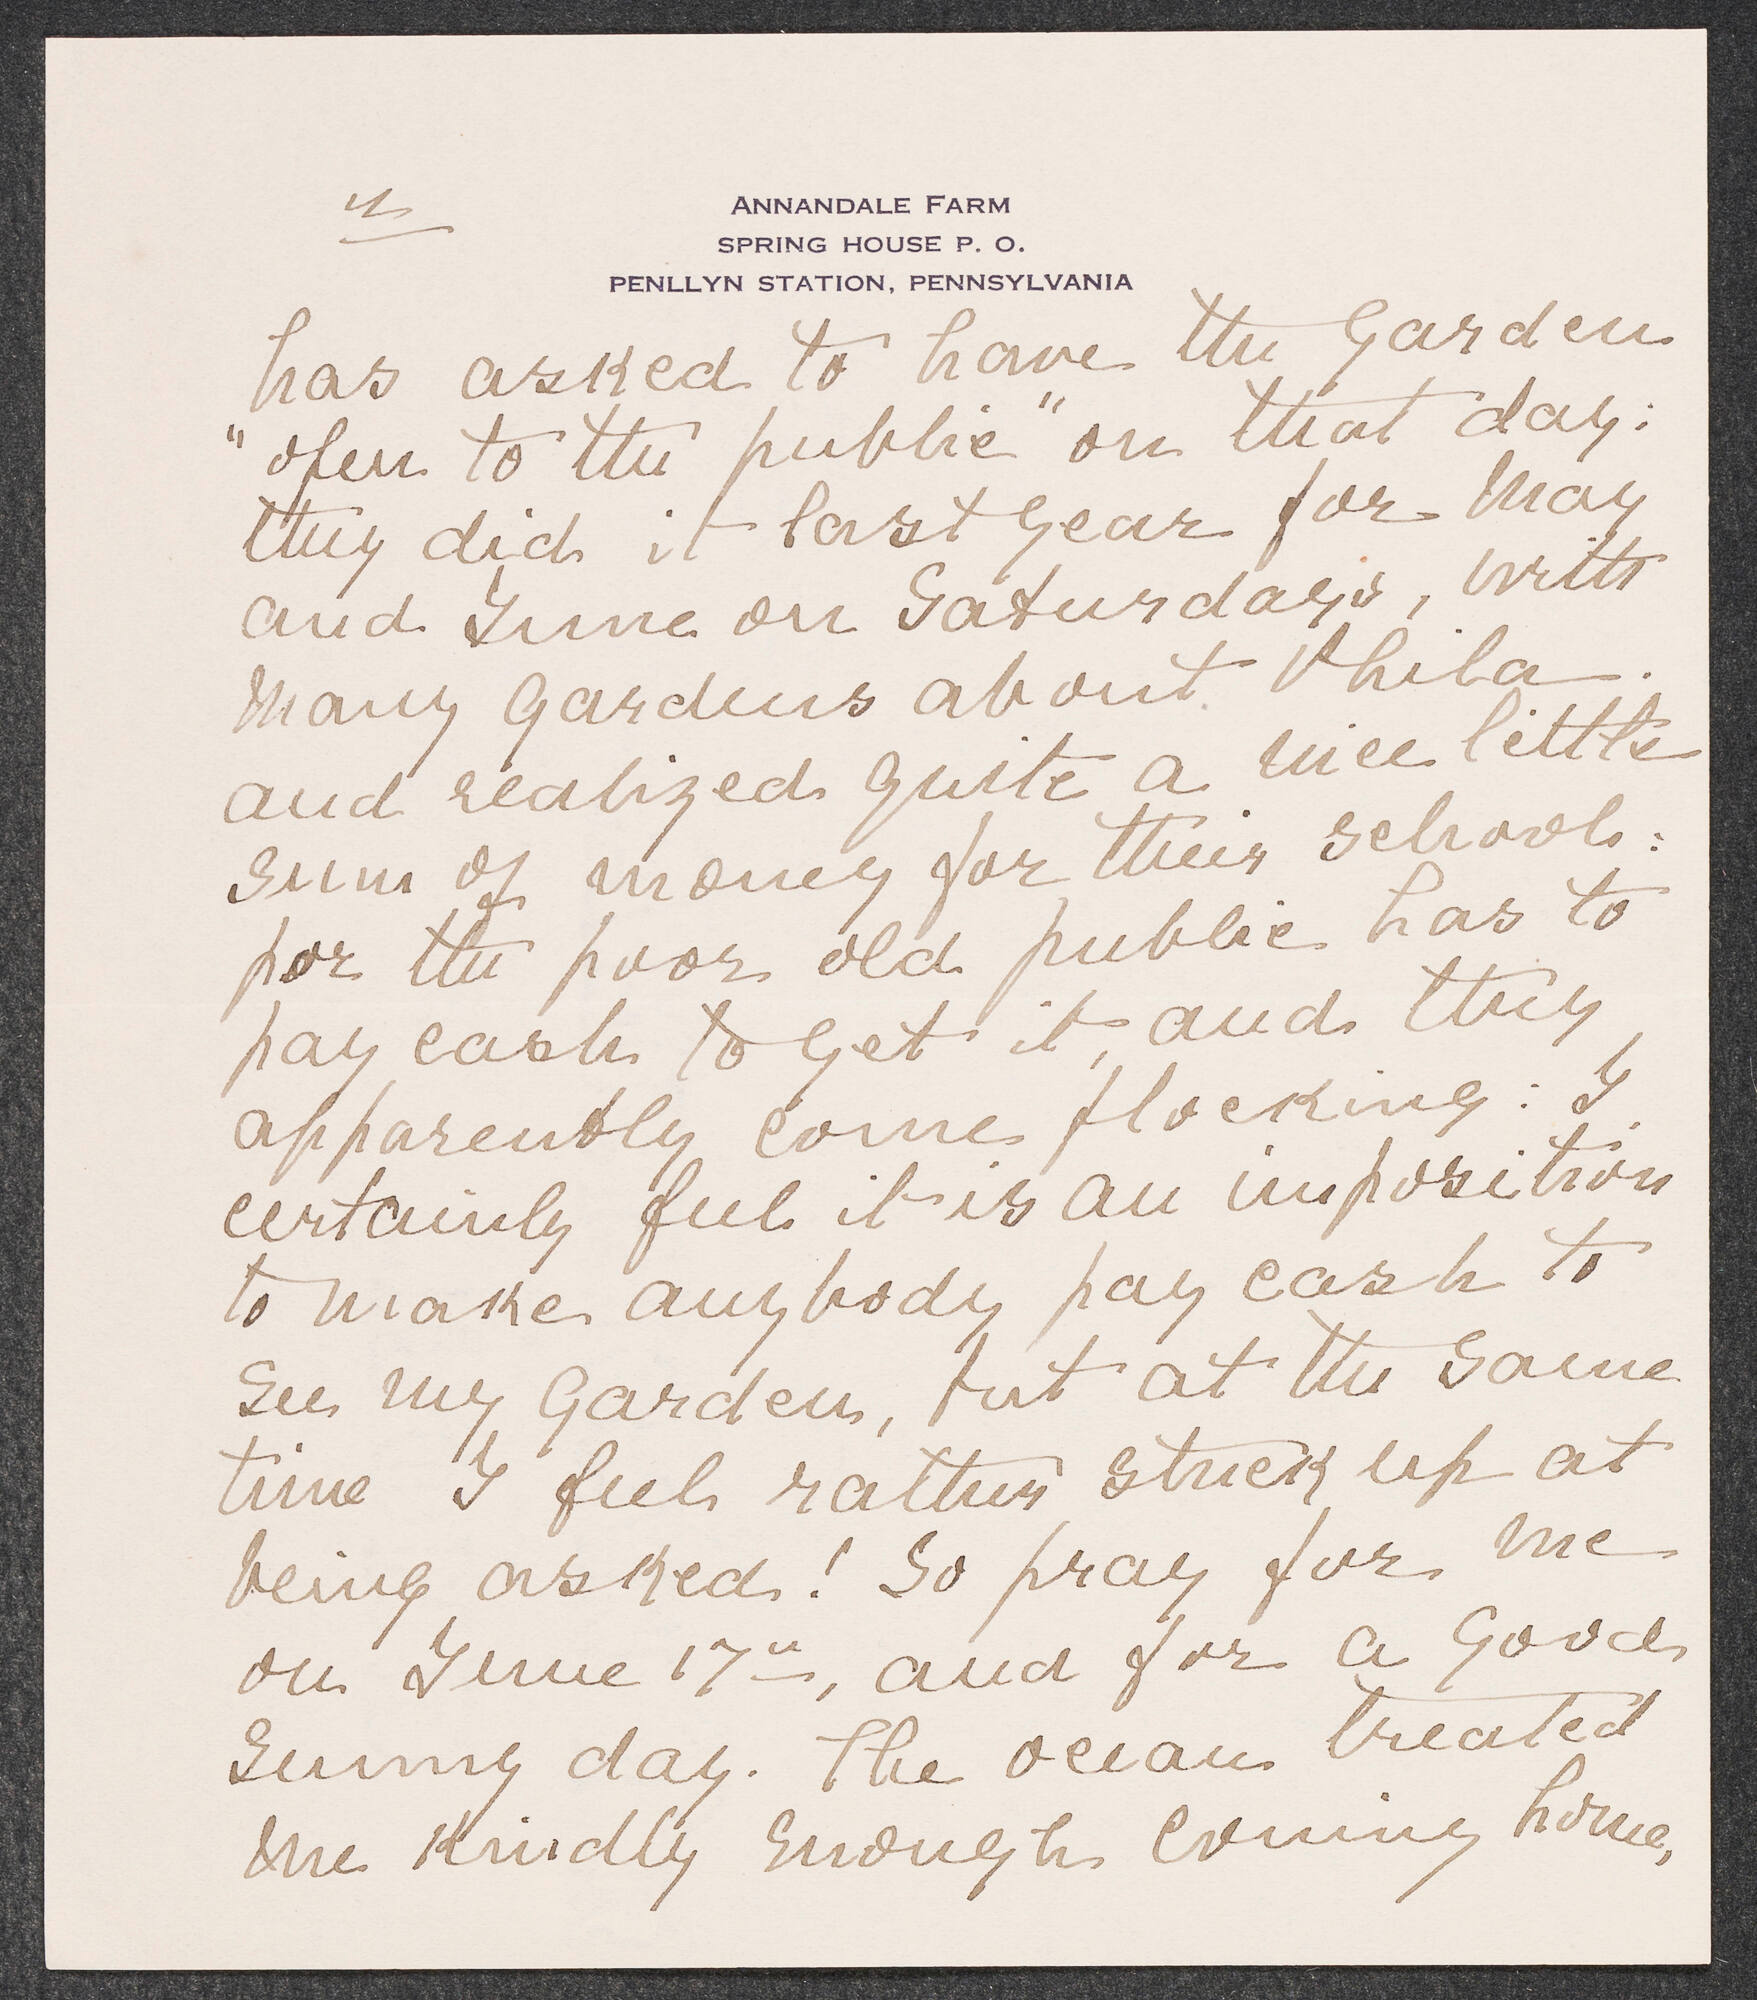 ANNANDALE FARM
SPRING HOUSE P. O.
PENLLYN STATION, PENNSYLVANIA
has asked to have the garden
"open to the public" on that day:
they did it last year for May
and June on Saturdays, with
many gardens about Phila.
and realized quite a nice little
sum of money for their schools:
for the poor old public has to
pay cash to get it, and they
apparently come flocking: I
certainly feel it is an imposition
to make anybody pay cash to
see my garden, but at the same
time I feel rather stuck up at
being asked! So pray for me
on June 17th, and for a good
sunny day. The ocean treated
me kindly enough coming home,